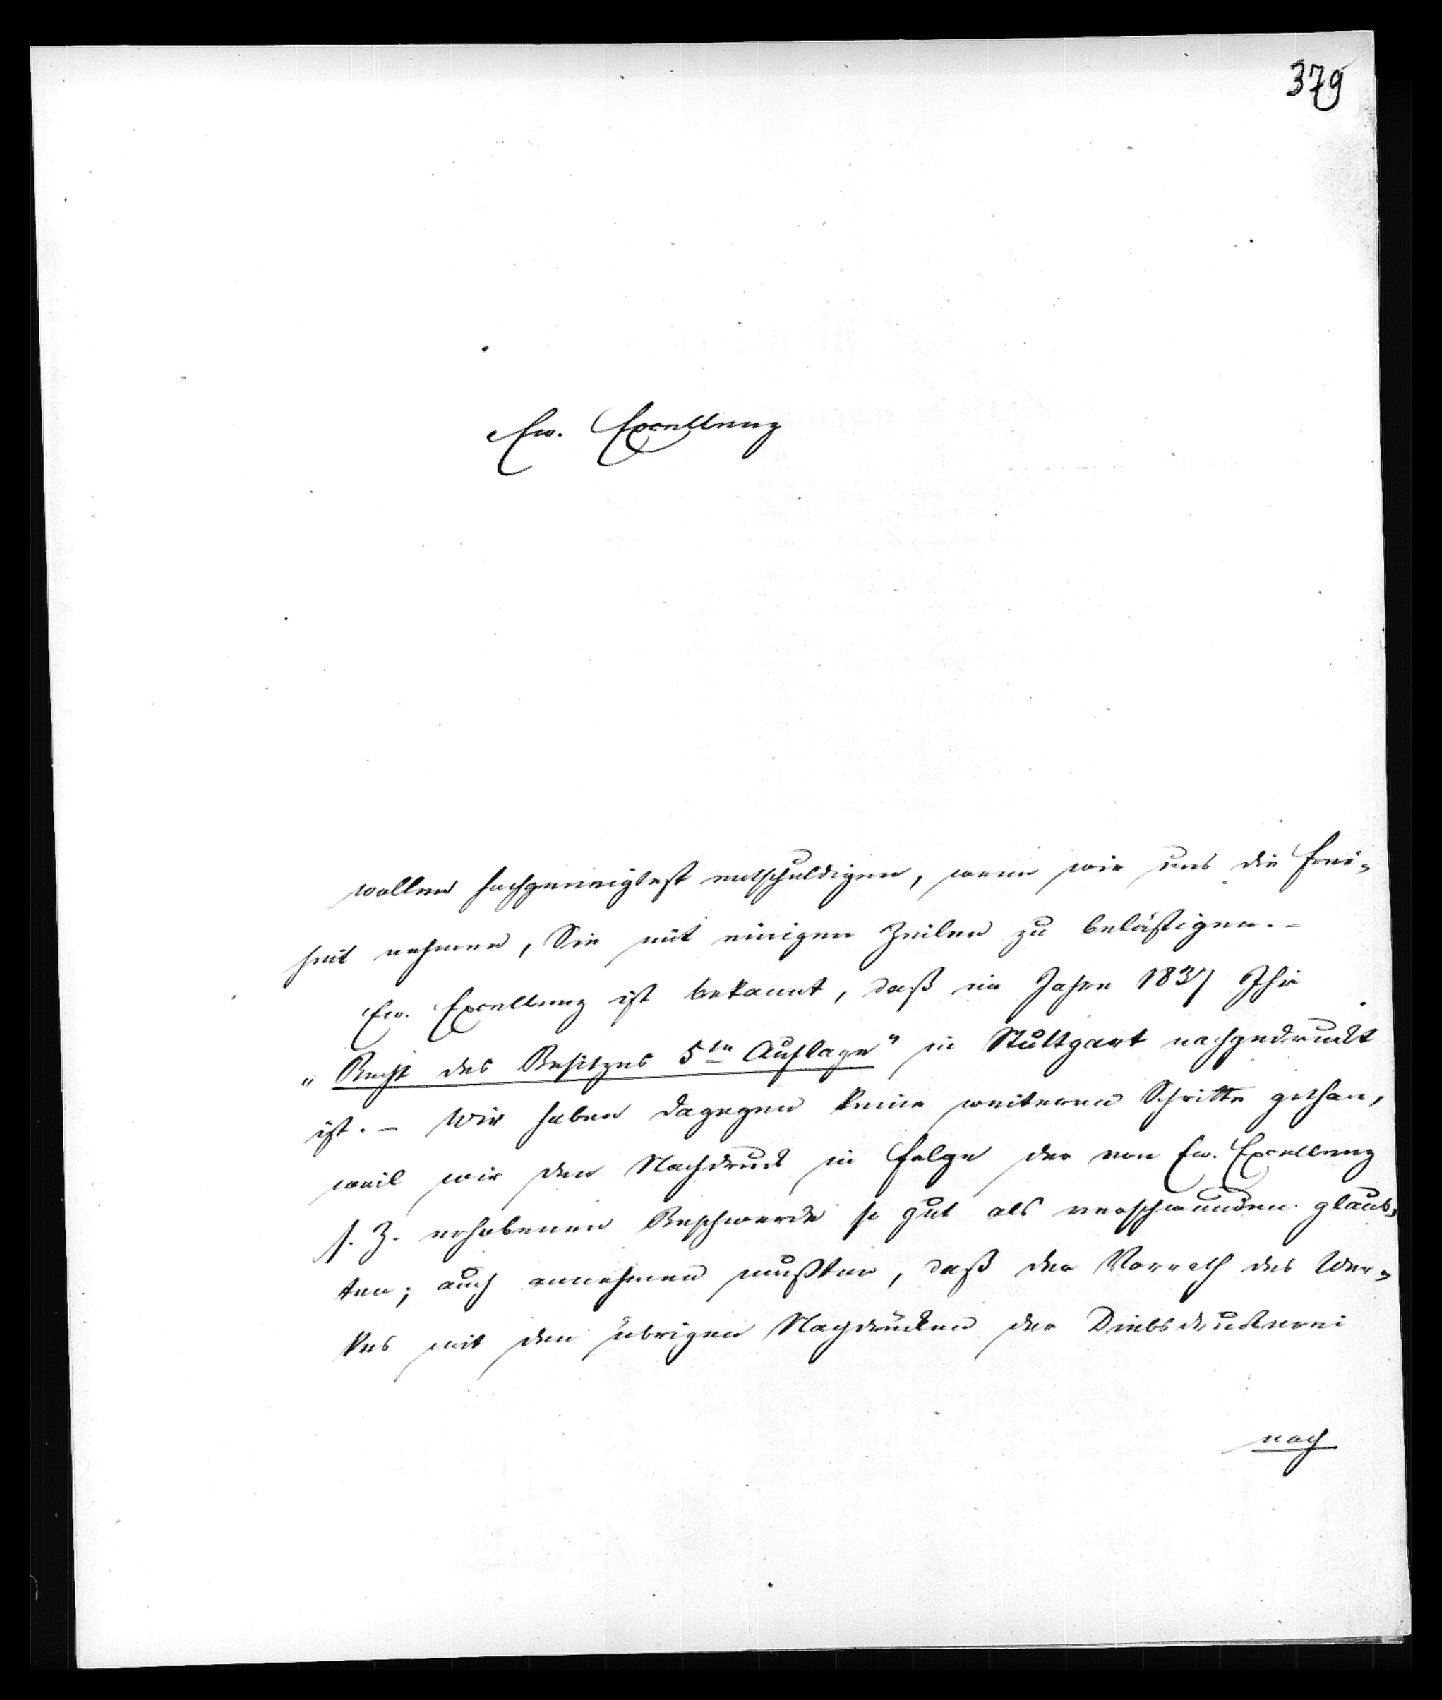 379
Ew. Excellenz
wollen hochgeneigtest entschuldigen, wenn wir uns die Frei-
heit nehmen, Sie mit einigen Zeilen zu belästigen. –
Ew. Excellenz ist bekannt, daß im Jahre 1837 Ihr
„Recht des Besitzes 5te Auflage" in Stuttgart nachgedruckt
ist. – Wir haben dagegen keine weiteren Schritte gethan,
weil wir den Nachdruck in Folge der von Ew. Excellenz
s. Z. erhobenen Beschwerde so gut als verschwunden glaub-
ten; auch annehmen mußten, daß der Vorrath des Wer-
kes mit den übrigen Nachdrücken der Diebsdruckerei
nach